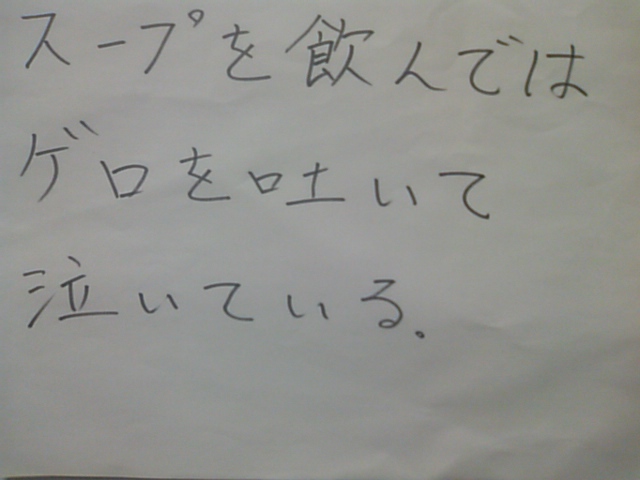 スープを飲んでは
ゲロを吐いて
泣いている.